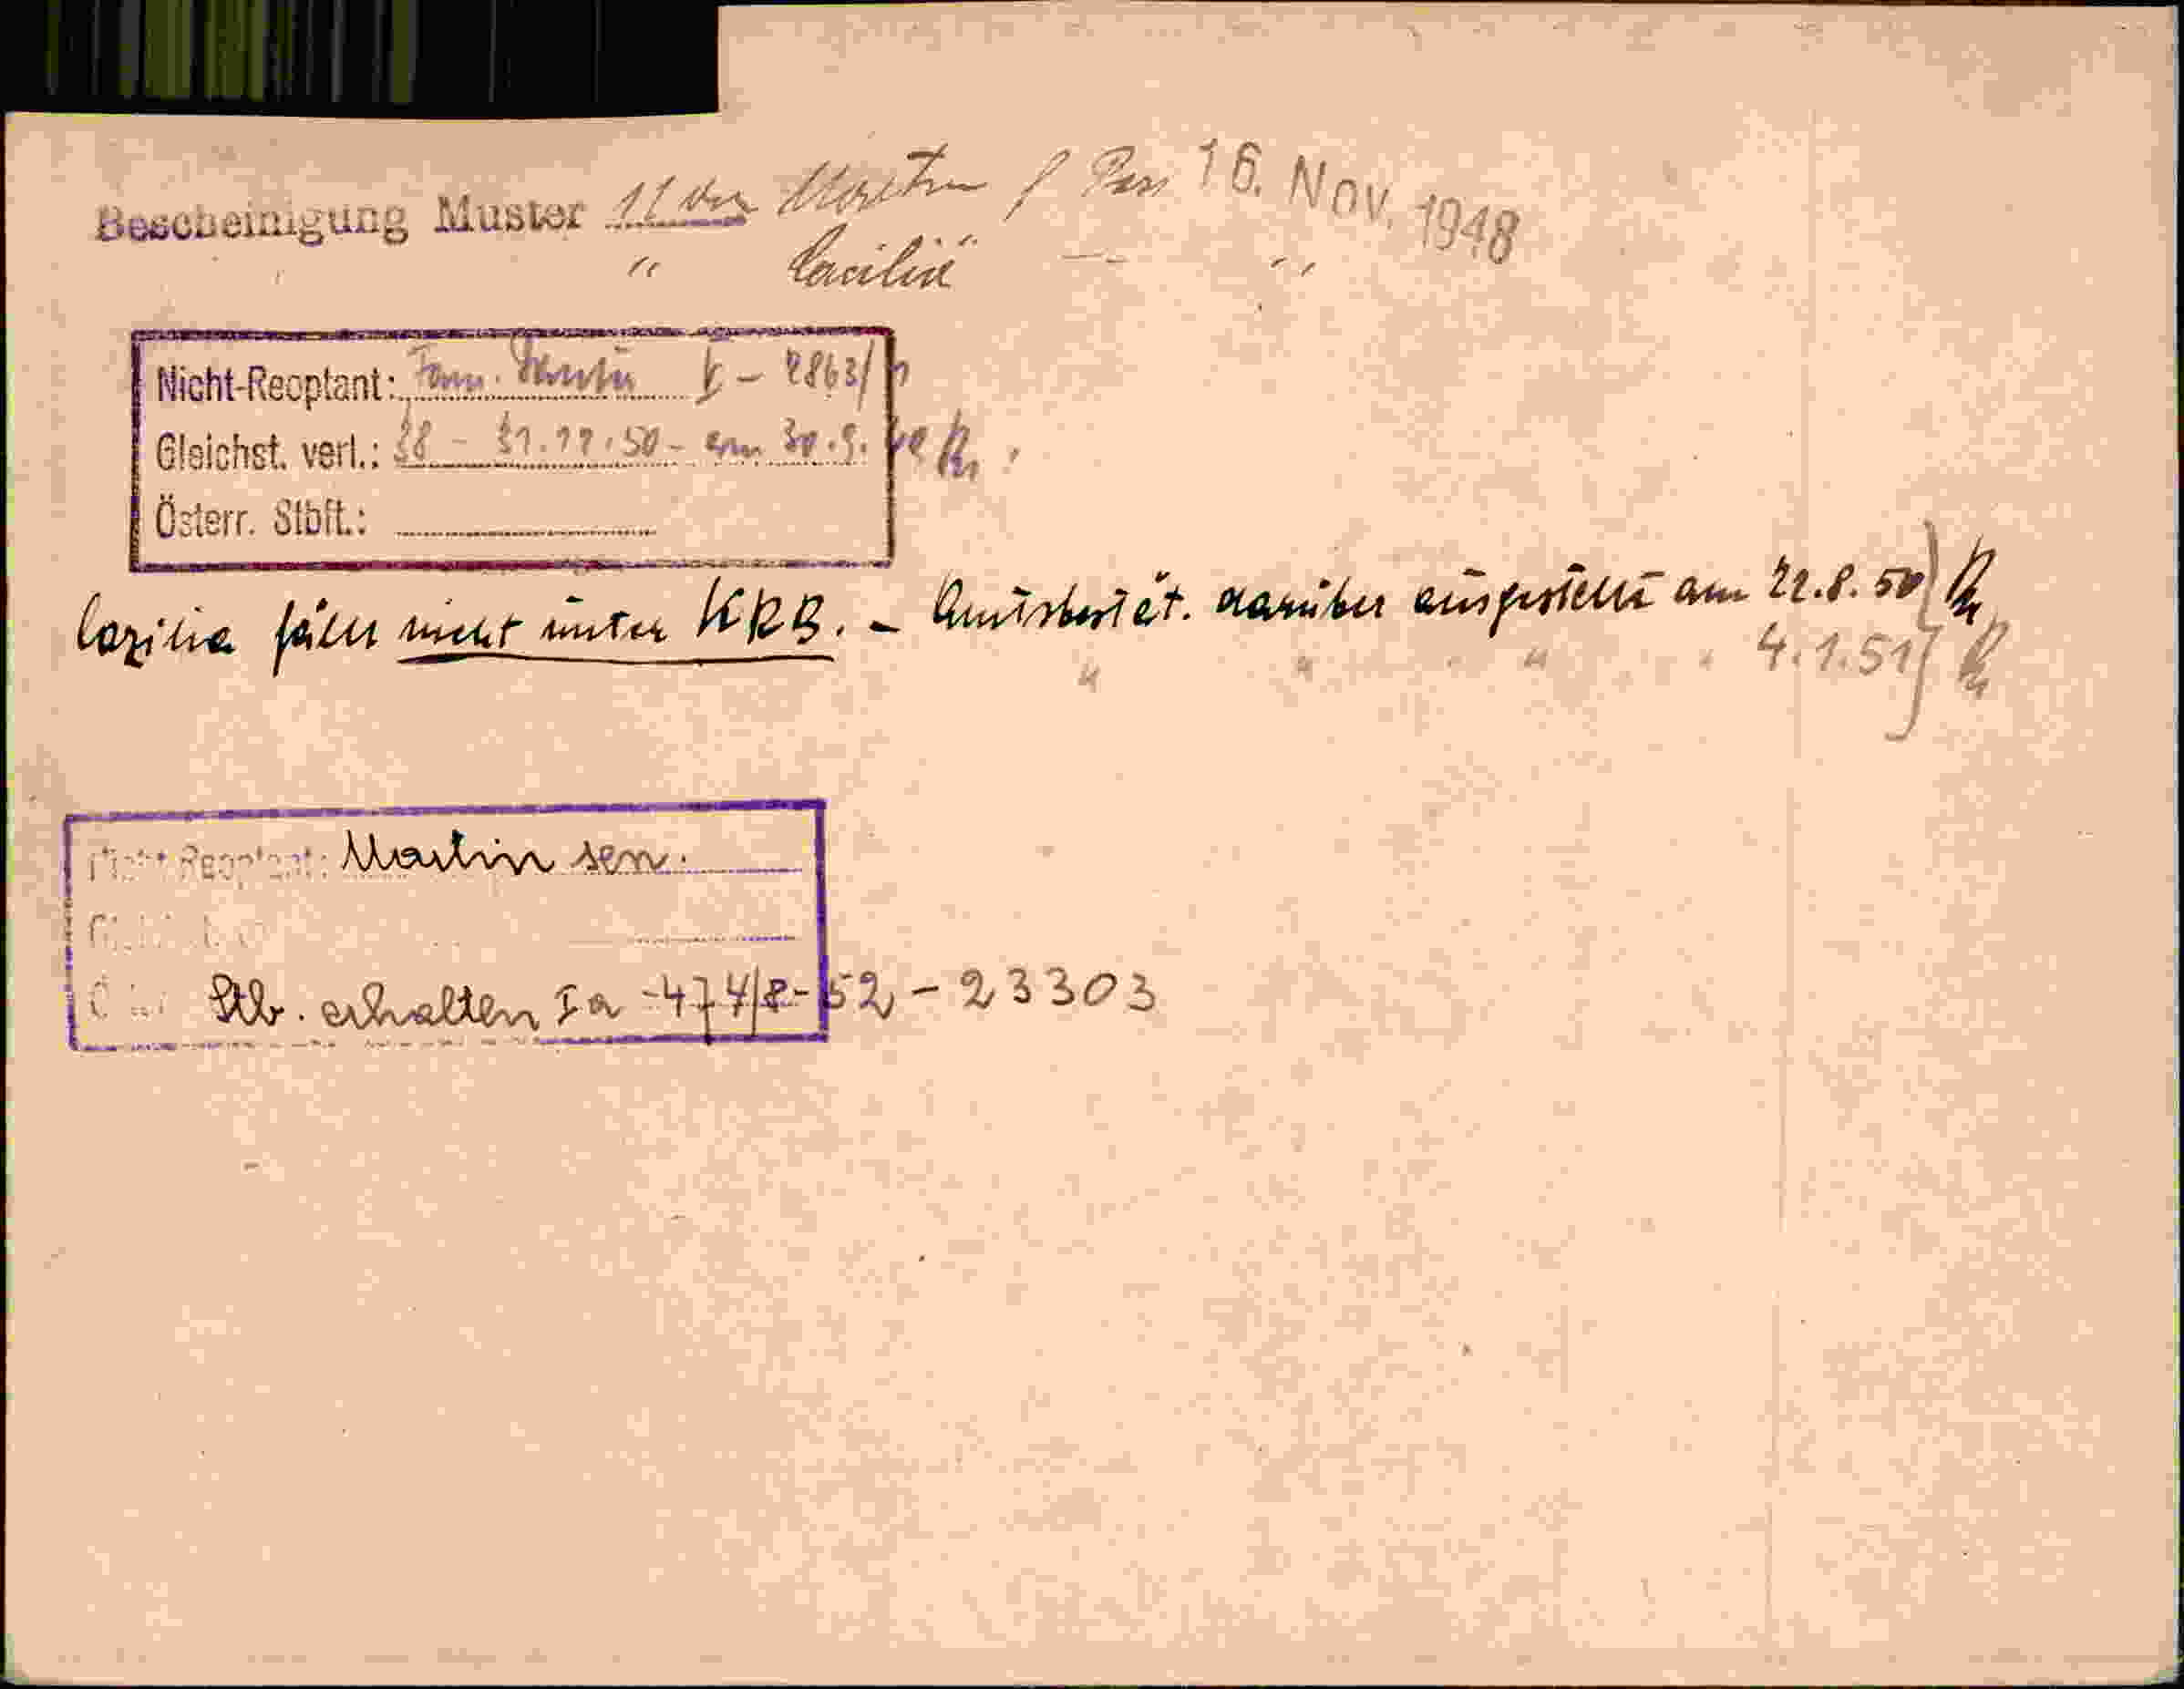 Bescheinigung Muster 11 Martin f. Pass 16. Nov. 1948
" Cäcilië — "
Nicht-Reoptant: Fam. Martin V - 2863/
Gleichst. verl.: 38 - 31.12.50 - am 30.9.
Österr. Stbft.:
Cäzilia fällt nicht unter KRB. - Amtsbestät. darüber ausgestellt am 22.8.50
" " " " " 4.1.51
Nicht Reoptant: Martin sen.
Stb. erhalten Ia - 474/8-52 - 23303